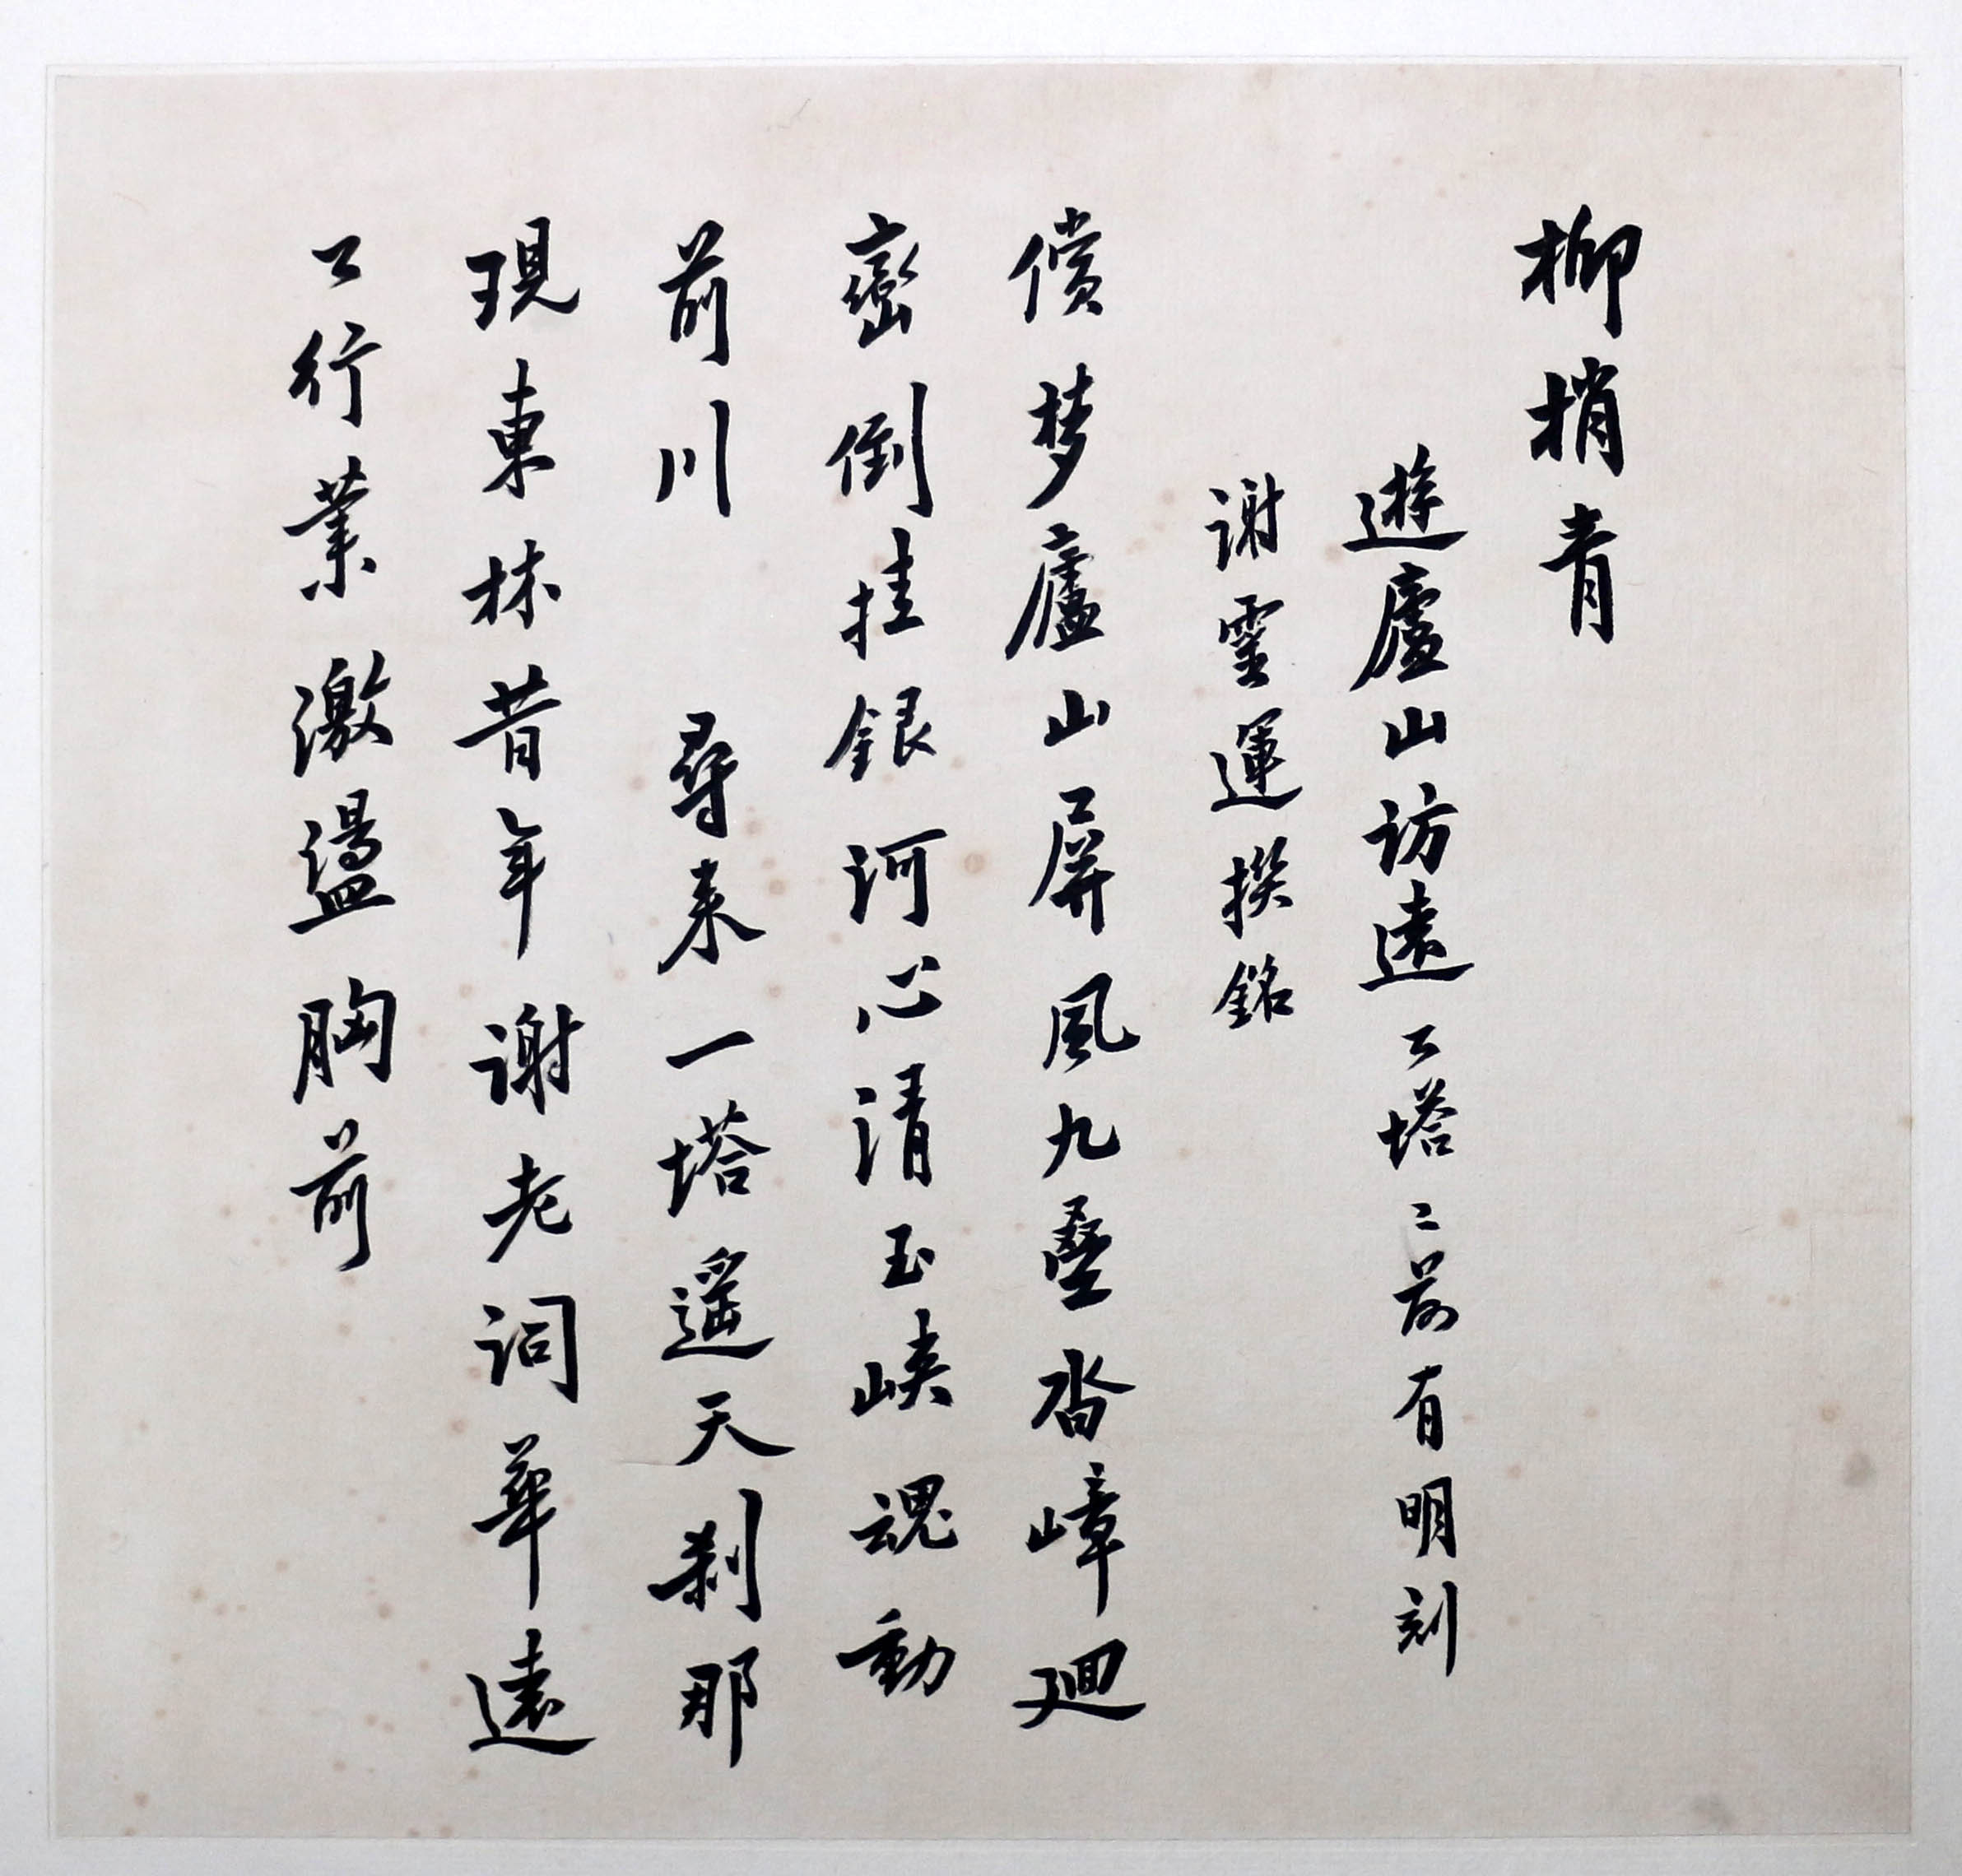 柳梢青
遊廬山訪遠公塔二前有明刻
謝靈運撰銘
償梦廬山屏風九疊沓嶂廻
巒倒挂銀河心清玉峡魂動
前川 尋来一塔遥天刹那
現東林昔年謝老词華遠
公行業激盪胸前